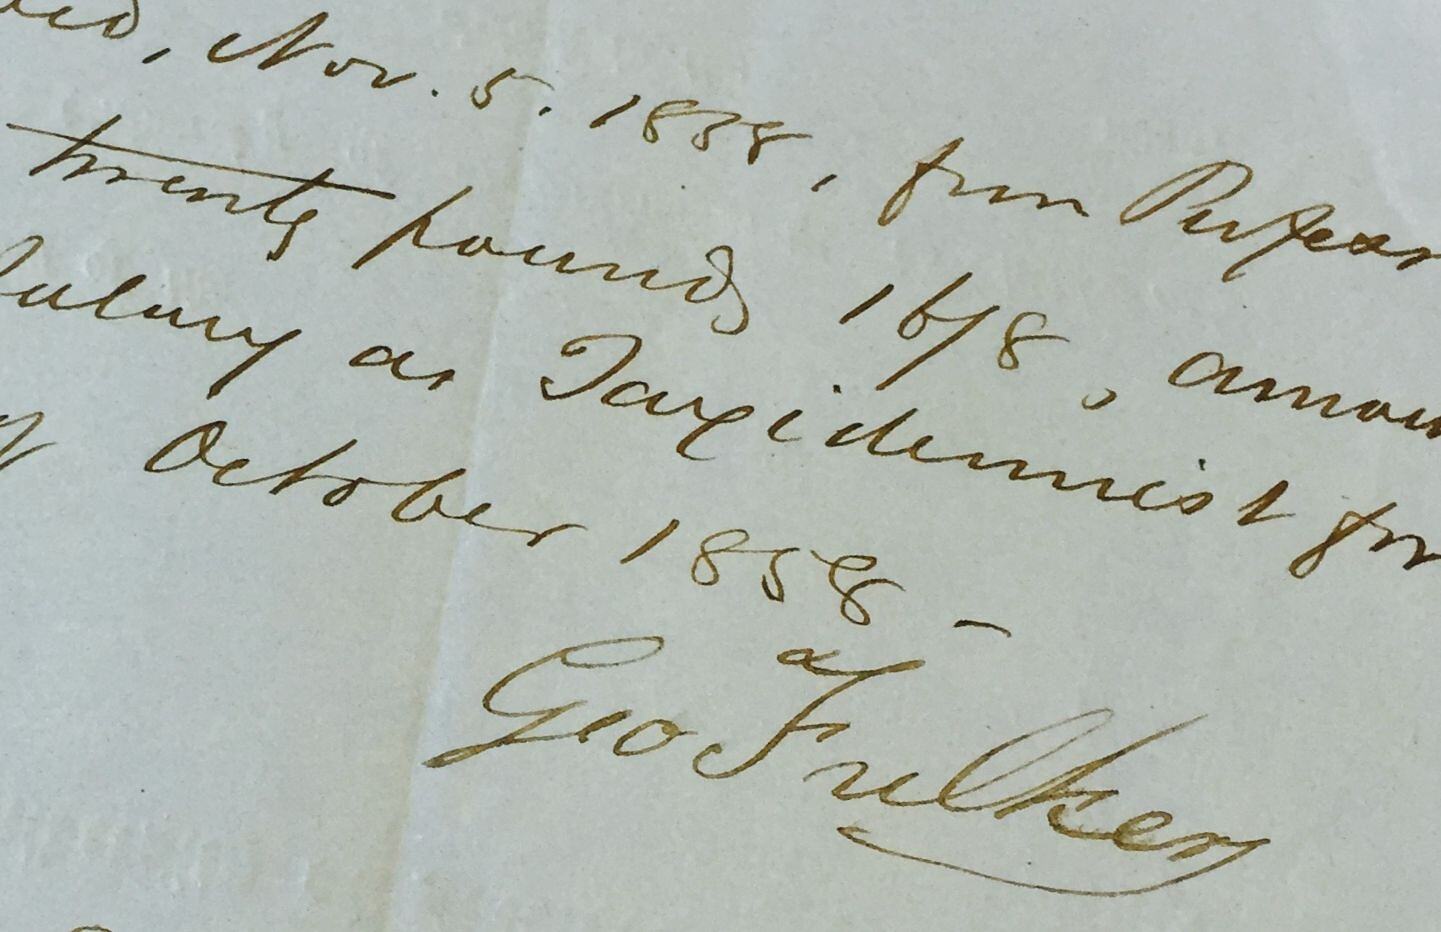 Nov. 5. 1858, from Professor
twenty pounds 16/8, amoun
Salary as Taxidermist for
of October 1858 –
Geo Fulker